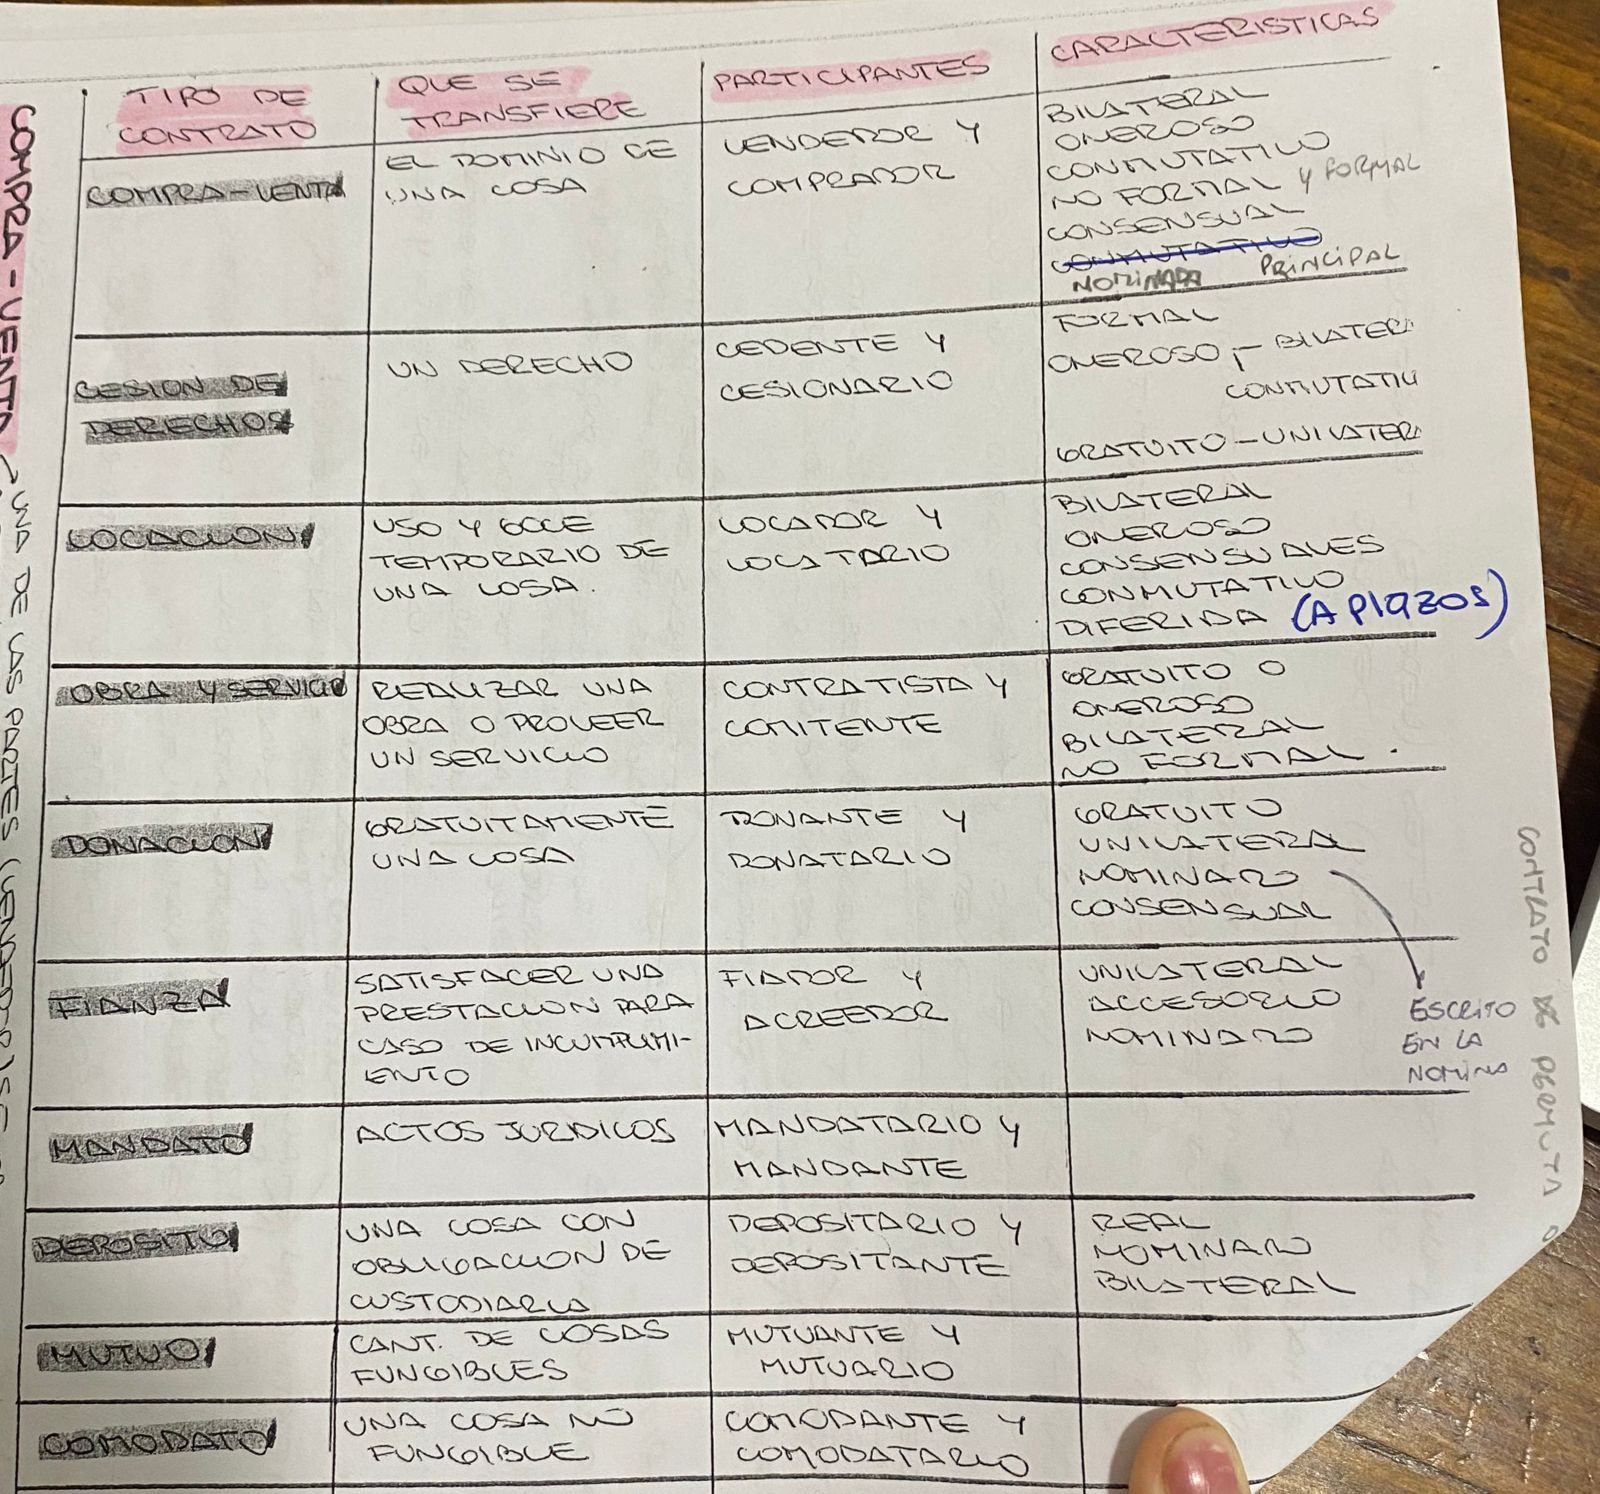 TIPO DE
CONTRATO
QUE SE
TRANSFIERE
PARTICIPANTES
CARACTERISTICAS
COMPRA-VENTA
EL DOMINIO DE
UNA COSA
VENDEDOR Y
COMPRADOR
BILATERAL
ONEROSO
CONMUTATIVO
NO FORMAL Y FORMAL
CONSENSUAL
CONMUTATIVO
NOMINADA PRINCIPAL
CESION DE
DERECHOS
UN DERECHO
CEDENTE Y
CESIONARIO
FORMAL
ONEROSO,- BILATER
CONMUTATIV
GRATUITO-UNILATERA
LOCACION
USO Y GOCE
TEMPORARIO DE
UNA COSA.
LOCADOR Y
LOCATARIO
BILATERAL
ONEROSO
CONSENSUALES
CONMUTATIVO
DIFERIDA (A PlAZOS)
OBRA Y SERVICIO
REALIZAR UNA
OBRA O PROVEER
UN SERVICIO
CONTRATISTA Y
COMITENTE
GRATUITO O
ONEROSO
BILATERAL
NO FORMAL.
DONACION
GRATUITAMENTE
UNA COSA
DONANTE Y
DONATARIO
GRATUITO
UNILATERAL
NOMINADO
CONSENSUAL
FIANZA
SATISFACER UNA
PRESTACION PARA
CASO DE INCUMPLIMI-
ENTO
FIADOR Y
ACREEDOR
UNILATERAL
ACCESORIO
NOMINADO
ESCRITO
EN LA
NOMINA
MANDATO
ACTOS JURIDICOS
MANDATARIO Y
MANDANTE
DEPOSITO
UNA COSA CON
OBLIGACION DE
CUSTODIARLA
DEPOSITARIO Y
DEPOSITANTE
REAL
NOMINADO
BILATERAL
MUTUO
CANT. DE COSAS
FUNGIBLES
MUTUANTE Y
MUTUARIO
COMODATO
UNA COSA NO
FUNGIBLE
COMODANTE Y
COMODATARIO
COMPRA-VENTA
UNA DE LAS PARTES (VENDEDOR) SE
CONTRATO DE PERMUTA